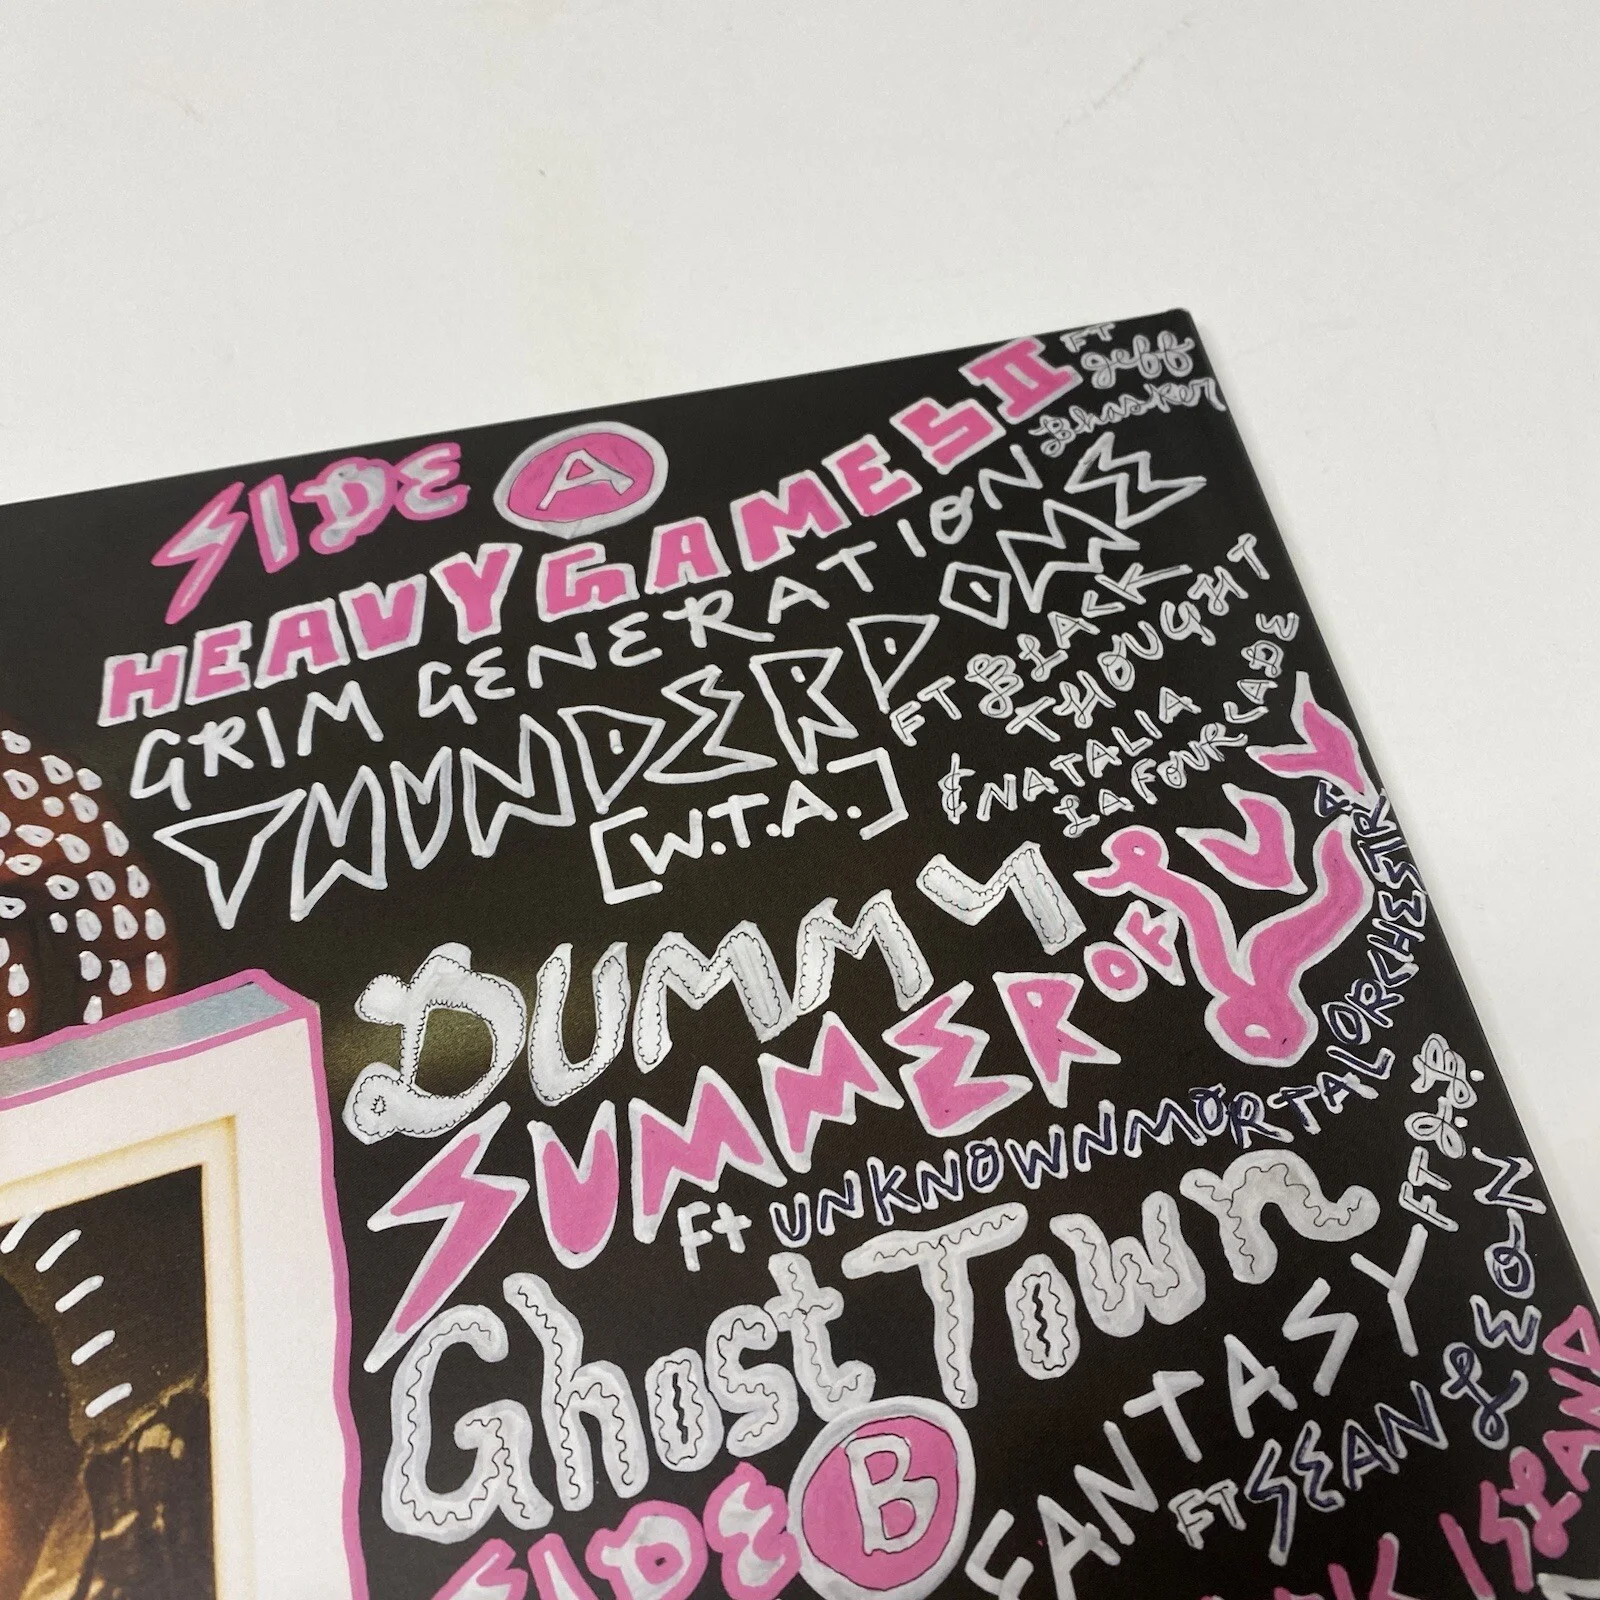 SIDE A
HEAVY GAMES II FT Jeff Bhasker
GRIM GENERATION
THUNDERDOME [W.T.A.] FT BLACK THOUGHT & NATALIA LAFOURCADE
DUMMY
SUMMER OF LUV
Ft UNKNOWN MORTAL ORCHESTRA
Ghost Town FT J.B.
SIDE B
FANTASY
FT SEAN LEON
ISLAND